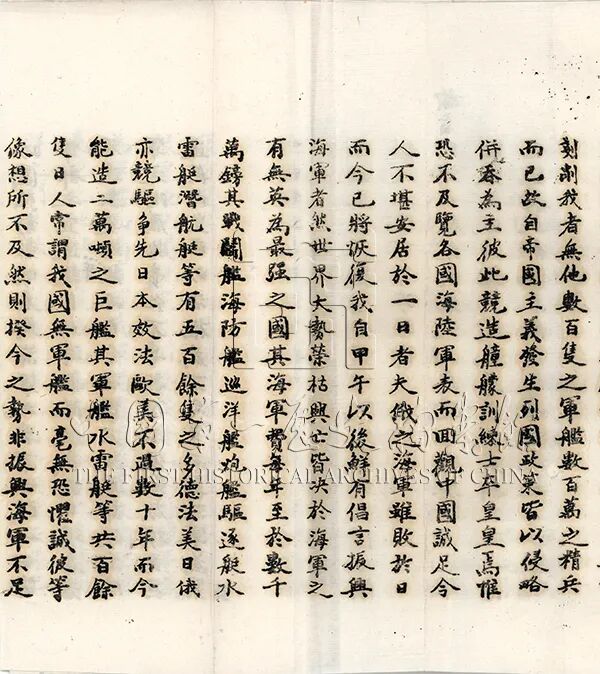 刻削我者無他數百隻之軍艦數百萬之精兵
而已故自帝國主義發生列國政策皆以侵略
併吞為主彼此競造艟艨訓練士卒皇皇焉惟
恐不及覽各國海陸軍表而回觀中國誠足令
人不堪安居於一日者夫俄之海軍雖敗於日
而今已將恢復我自甲午以後鮮有倡言振興
海軍者然世界大勢榮枯興亡皆决於海軍之
有無英為最强之國其海軍費每年至於數千
萬鎊其戰鬬艦海防艦巡洋艦砲艦驅逐艇水
雷艇潛航艇等有五百餘隻之多德法美日俄
亦競驅爭先日本效法歐美不過數十年而今
能造二萬噸之巨艦其軍艦水雷艇等共百餘
隻日人常謂我國無軍艦而毫無恐懼誠彼等
像想所不及然則揆今之勢非振興海軍不足
中國第一歷史檔案館
THE FIRST HISTORICAL ARCHIVES OF CHINA